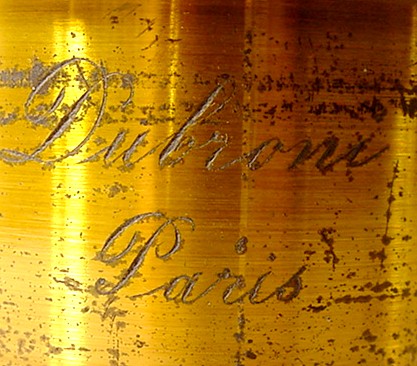 Dubroni
Paris